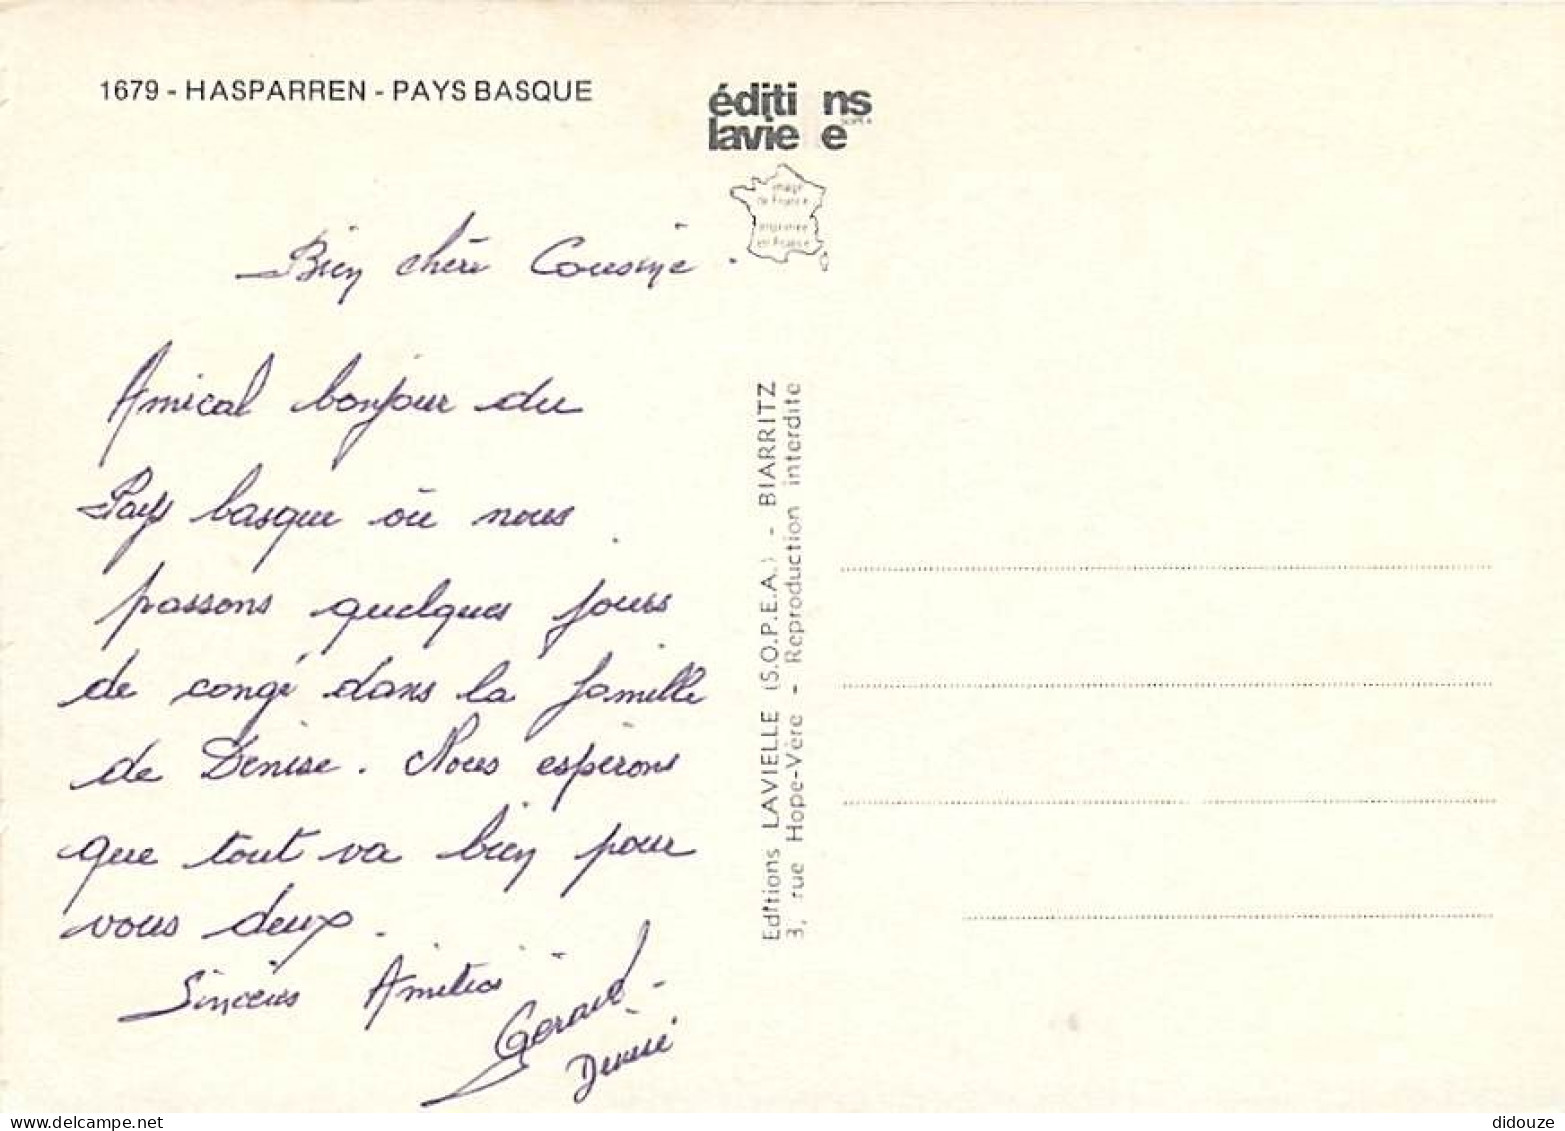 1679 - HASPARREN - PAYS BASQUE
éditi ns
lavie e
SOPEA
image
de France
imprimée
en France
Bien chère Cousine.
Amical bonjour du
Pays basque où nous
passons quelques jours
de congé dans la famille
de Denise. Nous espérons
que tout va bien pour
vous deux.
Sincères Amitiés
Gérard -
Denise
Editions LAVIELLE (S.O.P.E.A.) - BIARRITZ
3, rue Hope-Vère - Reproduction interdite
didouze